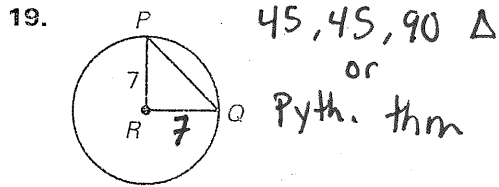 19.
P
7
R
7
Q
45, 45, 90 Δ
or
Pyth. thm